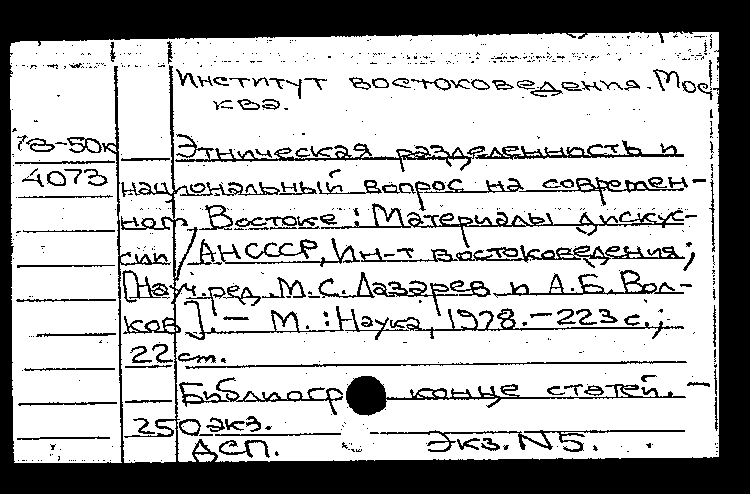 Институт востоковедения. Мос-
ква.
78-50к Этническая разделенность и
4073 национальный вопрос на современ-
ном Востоке : Материалы дискус-
сии / АН СССР, Ин-т востоковедения;
[Науч. ред. М.С. Лазарев и А.Б. Вол-
ков]. - М. : Наука, 1978. - 223 с.;
22 см.
Библиогр конце статей. -
250 экз.
ДСП. Экз. N5.